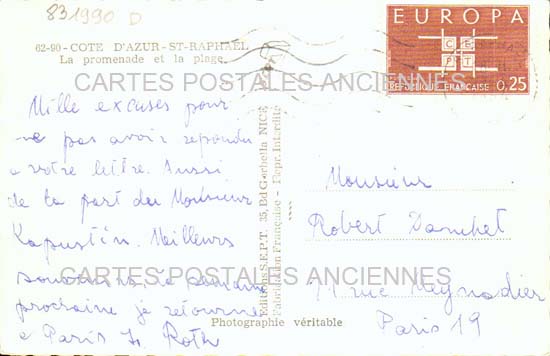 831990 D
62-90 - COTE D'AZUR - ST-RAPHAEL
La promenade et la plage.
EUROPA
CEPT
REPUBLIQUE FRANCAISE 0,25
CARTES POSTALES ANCIENNES
Mille excuses pour
ne pas avoir repondu
a votre lettre. Aussi
de la part du Monsieur
Kapustin. Meilleurs
la semaine
prochaine je retourne
a Paris H. Roth
Editions S.E.P.T. 35, Bd Gorbella NICE
Fabrication Française - Repr. Interdite
Monsieur
Robert
rue Meynadier
Paris 19
CARTES POSTALES ANCIENNES
Photographie véritable